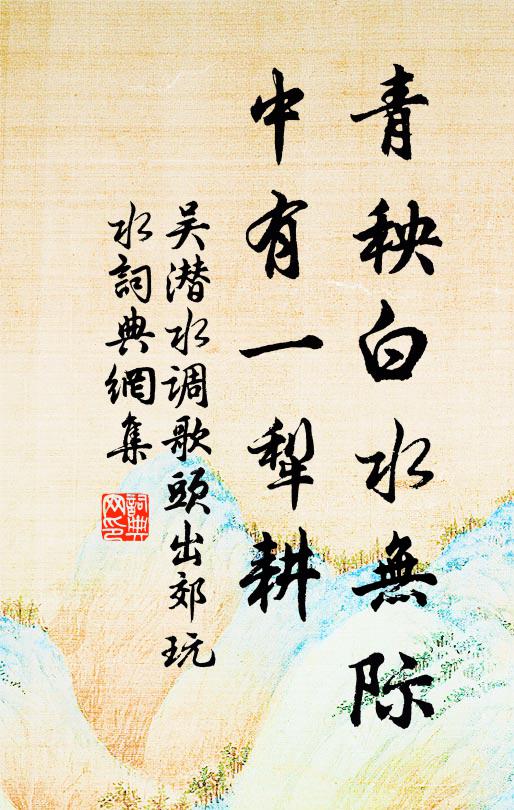 青秧白水無际
中有一犁耕
吴潜水调歌頭出郊玩
水詞典網集
詞典网印